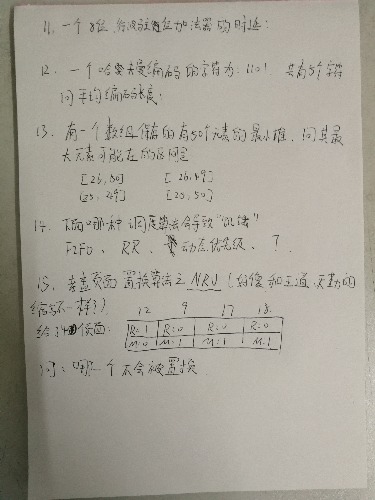 11. 一个8位, 行波进位加法器的时延:
12. 一个哈夫曼编码的字符为: 1101 共有5个字符
问平均编码长度:
13. 有一个数组保存的有50个元素的最小堆, 问其最
大元素可能在的区间是
[25, 50] [26, 49]
[25, 49] [20, 50]
14. 下面哪种调度算法会导致"饥饿"
FIFO、 RR、 动态优先级、 ?
15. 页面置换算法之NRU (好像和王道、天勤的
缩写不一样?)
12 9 17 18
给 个页面: R:1 R:0 R:0 R:0
M:0 M:1 M:1 M:1
问: 哪一个不会被置换